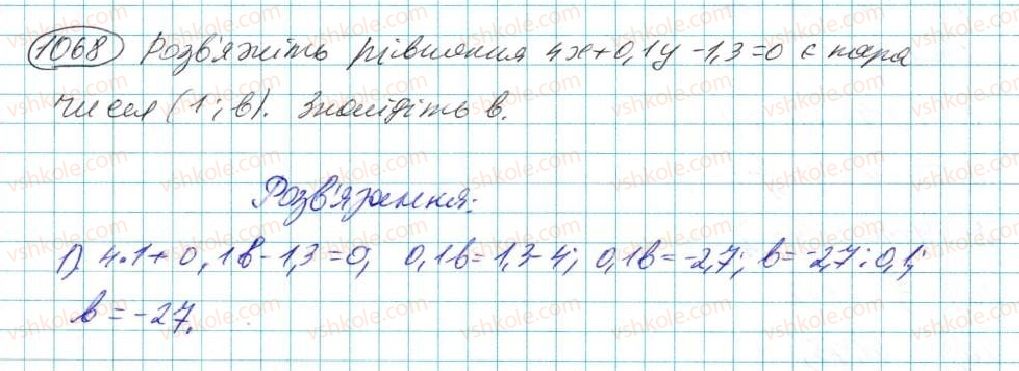 1068 Розв'яжіть рівняння 4x+0,1y-1,3=0 є пара
чисел (1; в). Знайдіть в.
Розв'язання:
1) 4•1+0,1в-1,3=0, 0,1в=1,3-4; 0,1в=-2,7; в=-2,7:0,1;
в=-27.